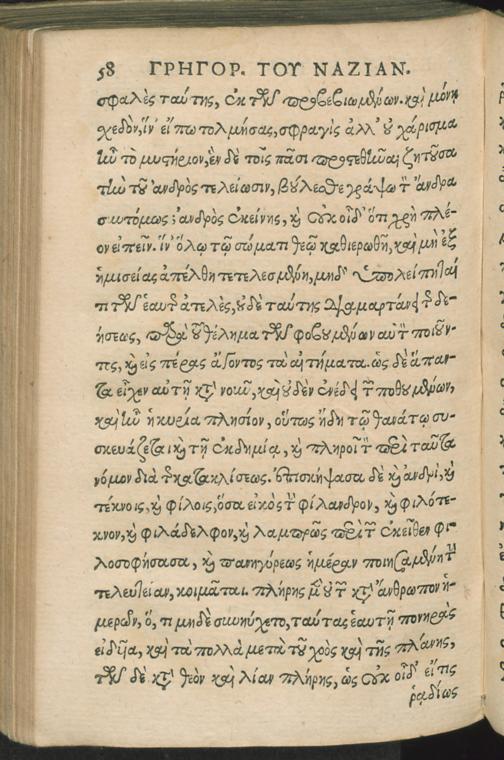 58 ΓΡΗΓΟΡ. ΤΟΥ ΝΑΖΙΑΝ.
σφαλὲς ταύτης, ἐκ τῶν προβεβιωμένων. καὶ μόνη
χεδὸν, ἵν' εἴπω τολμήσας, σφραγὶς ἀλλ' οὐ χάρισμα
ἦν τὸ μυστήριον, ἓν δὲ τοῖς πᾶσι προστεθῆναι ζητοῦσα
τὴν τοῦ ἀνδρὸς τελείωσιν, βούλεσθε γράψω τὸν ἄνδρα
συντόμως; ἀνδρὸς ἐκείνης, καὶ οὐκ οἶδ' ὅτι χρὴ πλέ-
ον εἰπεῖν. ἵν' ὅλῳ τῷ σώματι θεῷ καθιερωθῇ, καὶ μὴ ἐξ
ἡμισείας ἀπέλθῃ τετελεσμένη, μηδ' ὑπολείπηταί
τι τῶν ἑαυτῆς ἀτελὲς, οὐδὲ ταύτης διαμαρτάνει τῆς δε-
ήσεως, παρὰ τοῦ θέλημα τῶν φοβουμένων αὐτὸν ποιοῦν-
τος, καὶ εἰς πέρας ἄγοντος τὰ αἰτήματα. ὡς δὲ ἅπαν-
τα εἶχεν αὐτῇ κατὰ νοῦν, καὶ οὐδὲν ἐνέδει τῶν ποθουμένων,
καὶ ἦν ἡ κυρία πλησίον, οὕτως ἤδη τῷ θανάτῳ συ-
σκευάζεται καὶ τῇ ἐκδημίᾳ, καὶ πληροῖ τὸν περὶ ταῦτα
νόμον διὰ τῆς κατακλίσεως. ἐπισκήψασα δὲ καὶ ἀνδρὶ, καὶ
τέκνοις, καὶ φίλοις, ὅσα εἰκὸς τὴν φίλανδρον, καὶ φιλότε-
κνον, καὶ φιλάδελφον, καὶ λαμπρῶς περὶ τῶν ἐκεῖθεν φι-
λοσοφήσασα, καὶ πανηγύρεως ἡμέραν ποιησαμένη τὴν
τελευταίαν, κοιμᾶται. πλήρης μὲν οὐ τῶν κατὰ ἄνθρωπον ἡ-
μερῶν, ὅ, τι μηδὲ συνηύχετο, ταύτας ἑαυτῇ πονηρὰς
εἰδυῖα, καὶ τὰ πολλὰ μετὰ τοῦ χοὸς καὶ τῆς πλάνης,
τῶν δὲ κατὰ θεὸν καὶ λίαν πλήρης, ὡς οὐκ οἶδ' εἴ τις
ῥᾳδίως